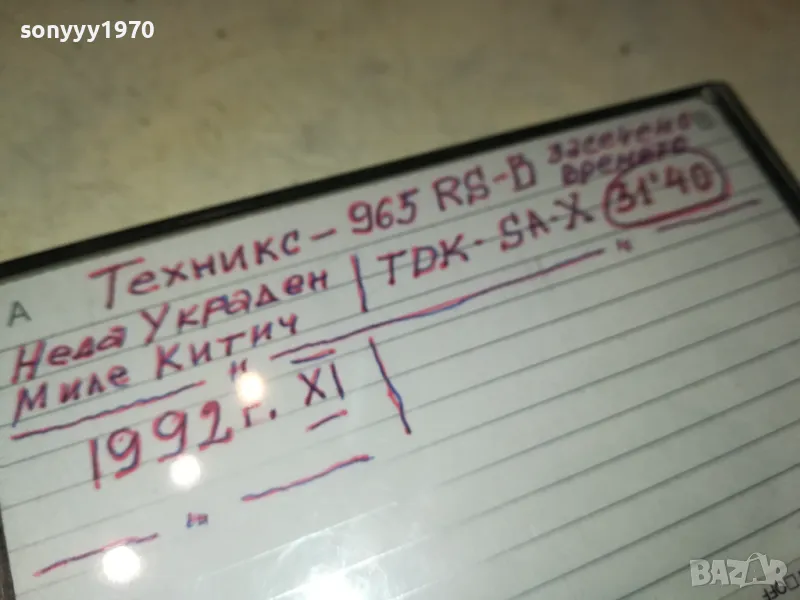 sonyyy1970
засечено
времето
Техникс - 965 RS-B
A
Неда Украден | TDK - SA-X 31'40
Миле Китич
1992 г. XI
BAZAR